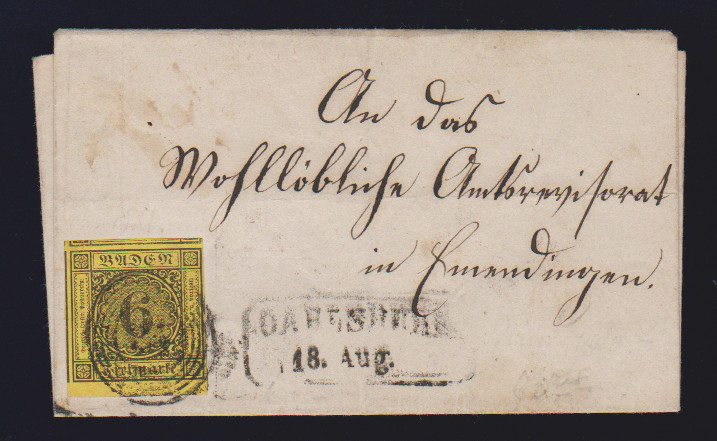 An das
Wohllöbliche Amtsrevisorat
in Emendingen.
BADEN
6
Freimarke
18. Aug.